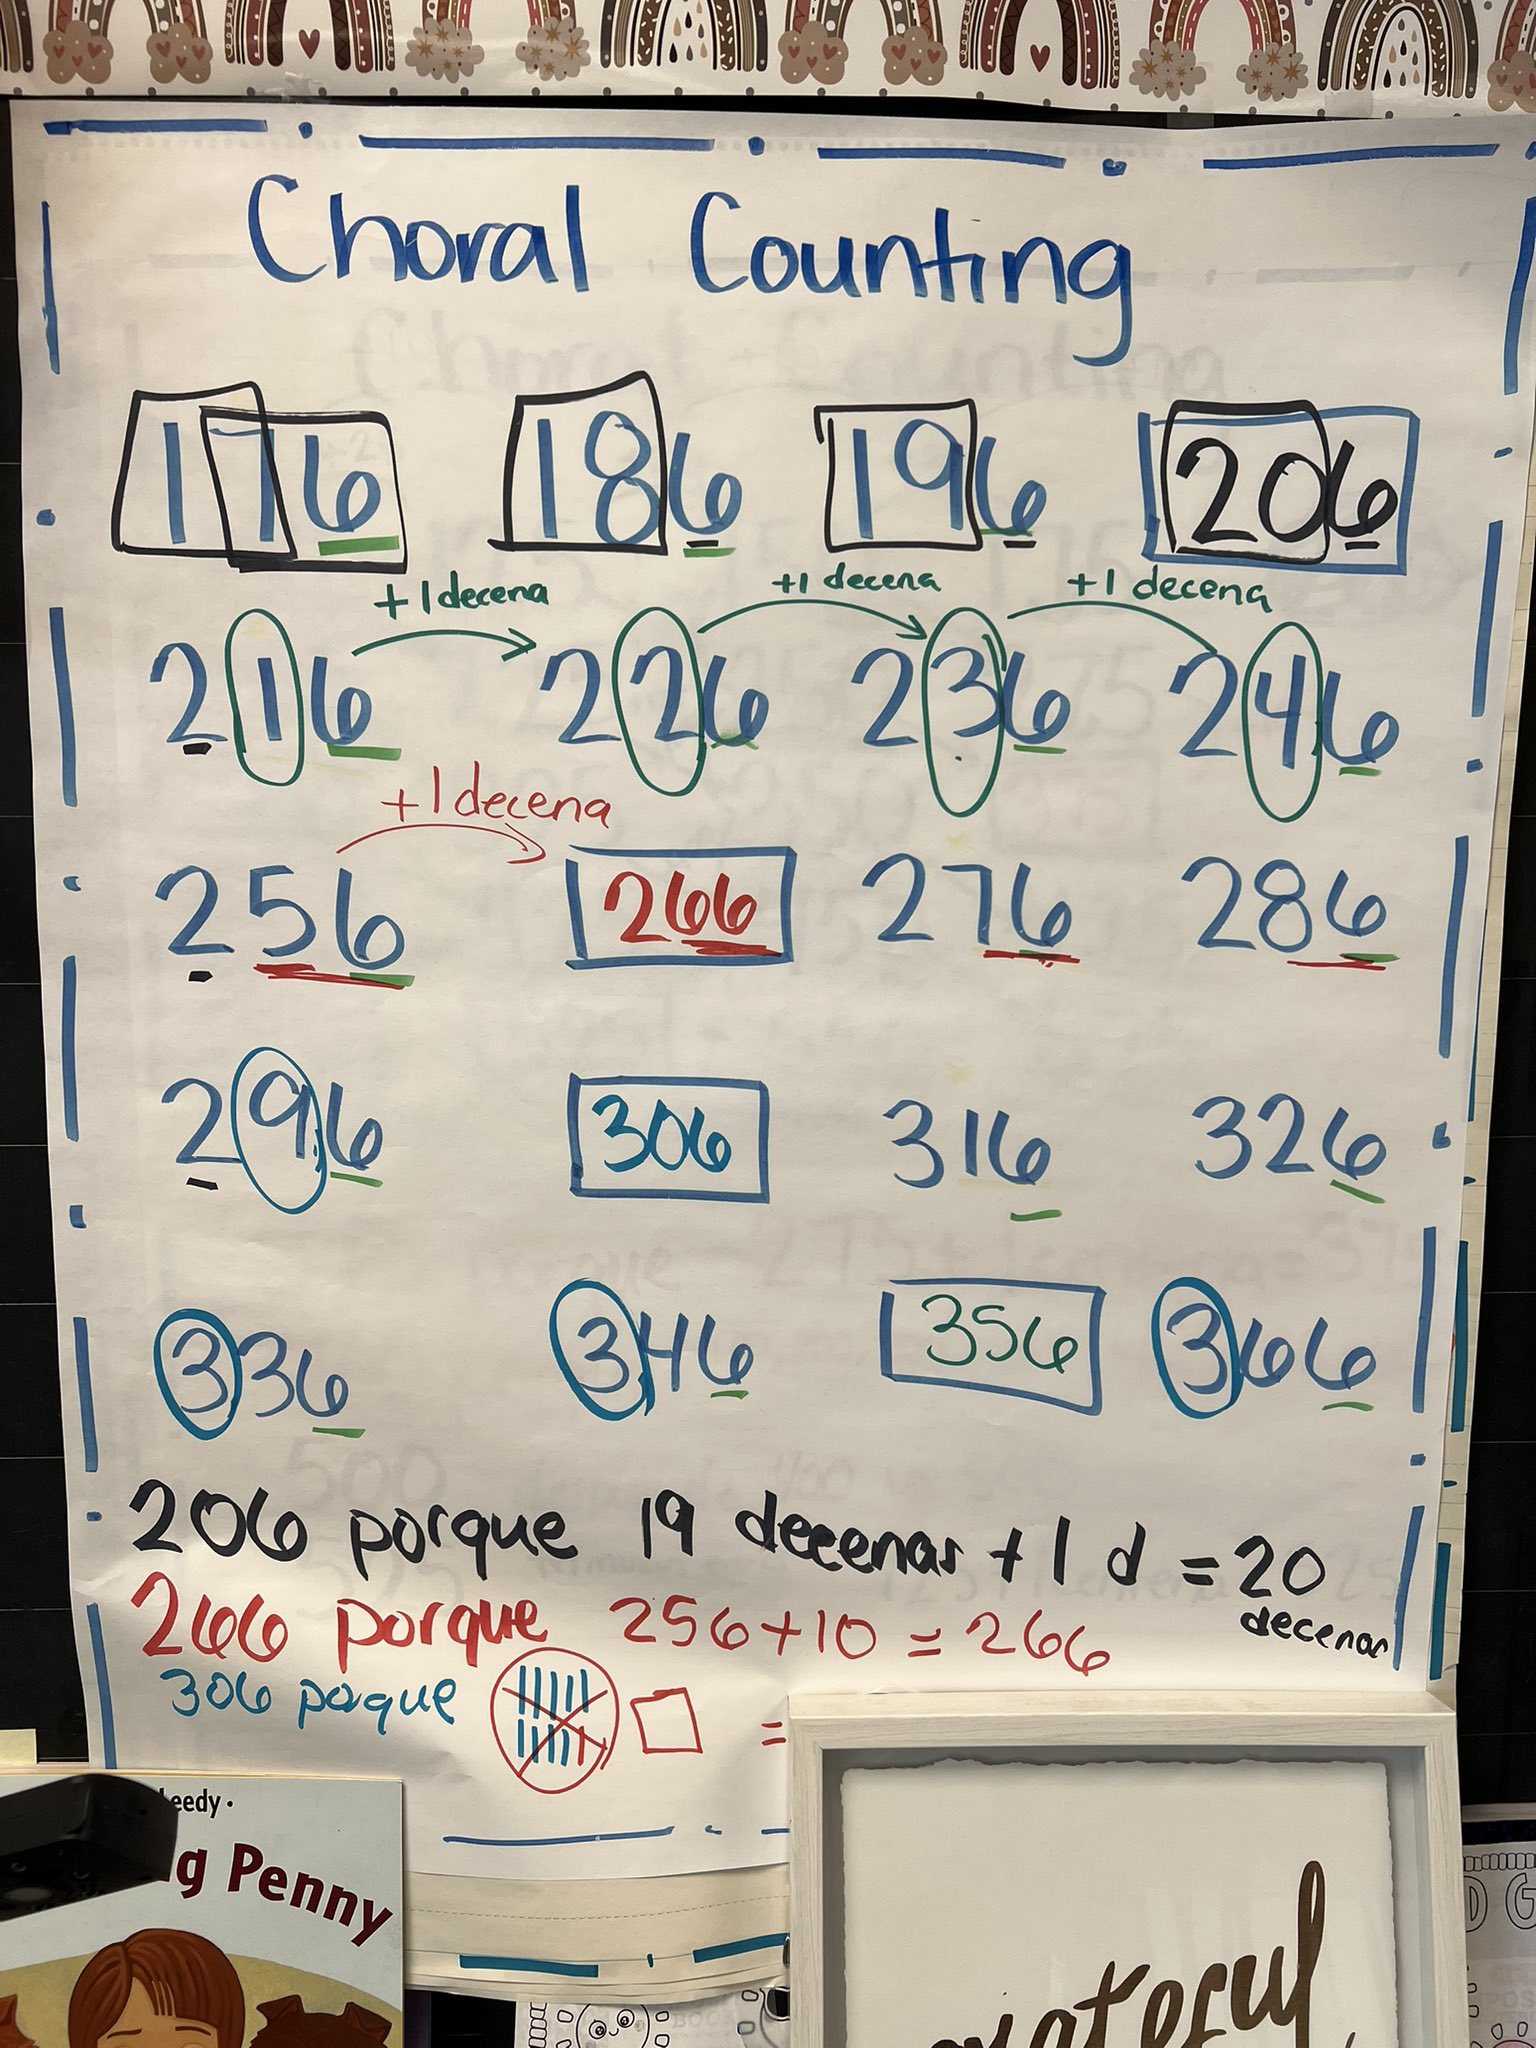 Choral Counting
176 186 196 206
+1 decena +1 decena +1 decena
216 226 236 246
+1 decena
256 266 276 286
296 306 316 326
336 346 356 366
206 porque 19 decenas + 1 d = 20
decenas
266 porque 256+10 = 266
306 porque =
eedy.
g Penny
grateful